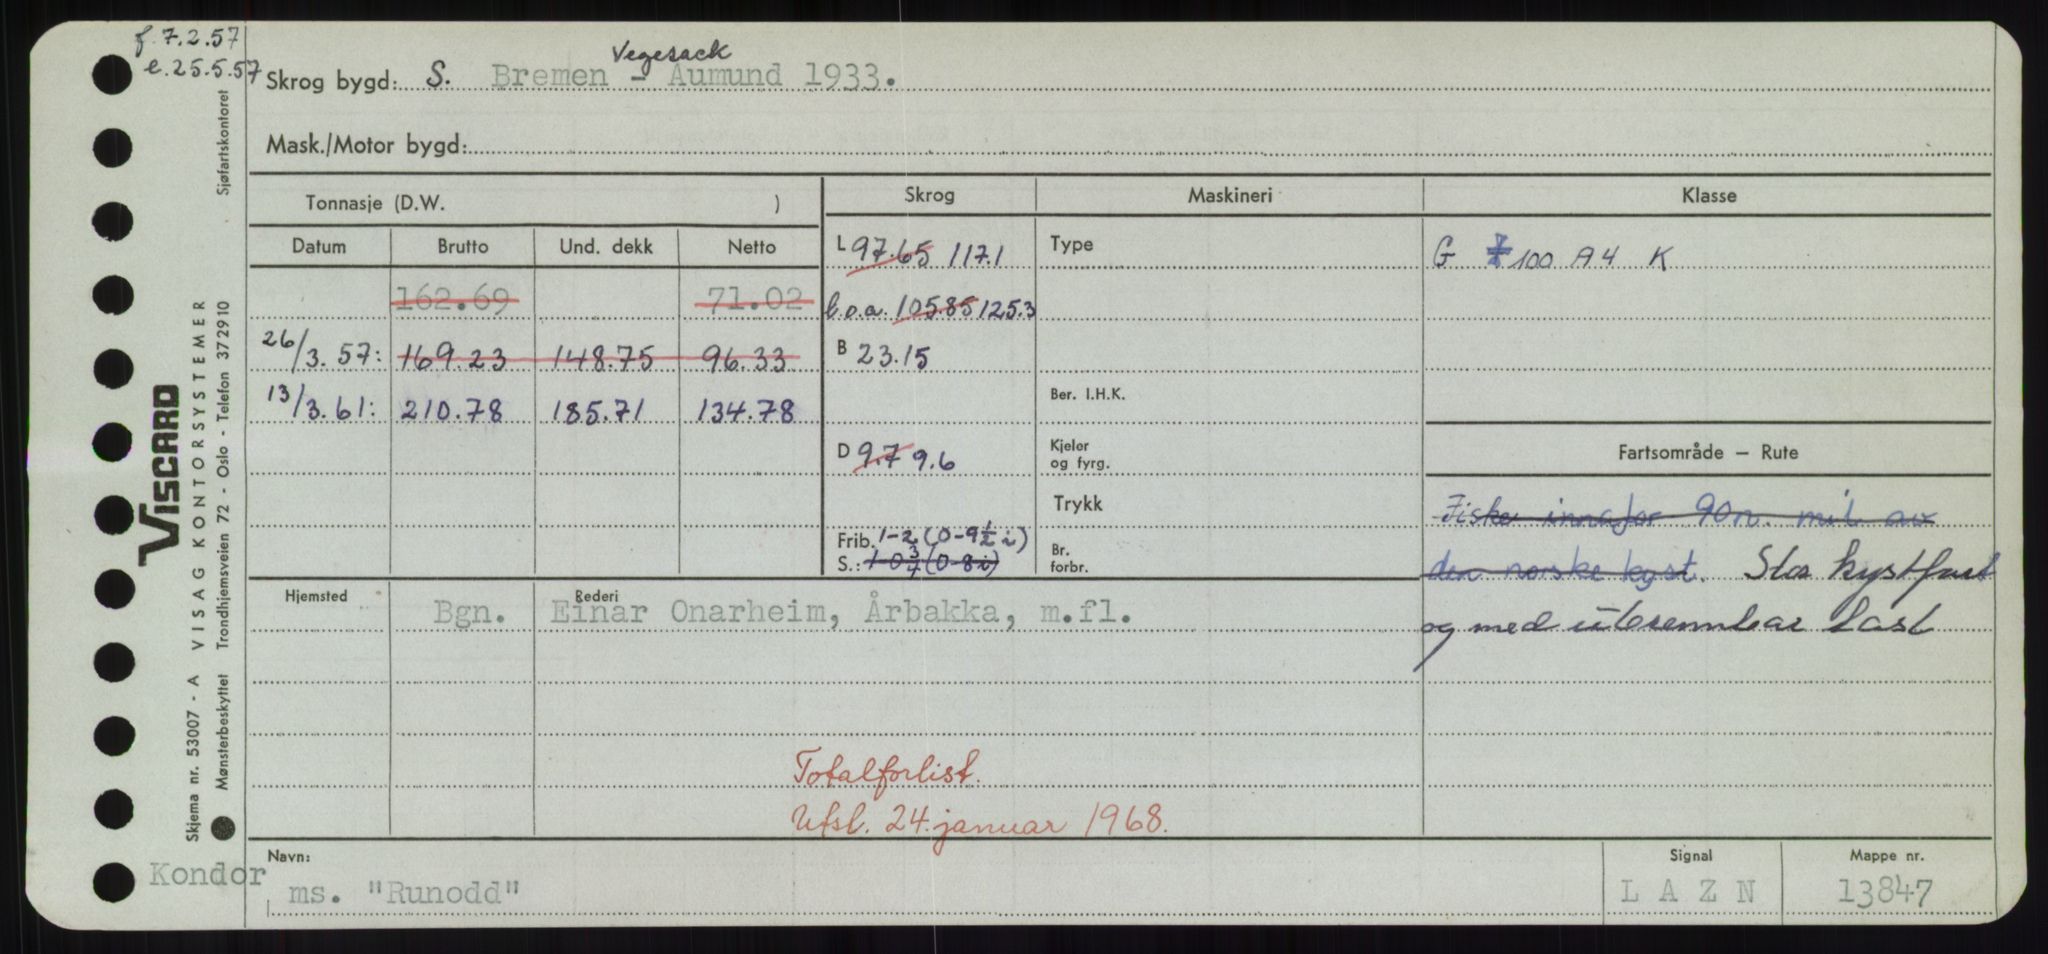 f. 7.2.57
e. 25.5.57
Skrog bygd: S. Bremen - Vegesack Aumund 1933.
Mask./Motor bygd:
Tonnasje (D.W. )
Skrog
Maskineri
Klasse
Datum Brutto Und. dekk Netto
L 97.65 117.1
Type
G 100 A4 K
162.69 71.02
l.o.a. 105.85 125.3
26/3.57: 169.23 148.75 96.33
B 23.15
13/3.61: 210.78 185.71 134.78
Ber. I.H.K.
D 9.7 9.6
Kjeler
og fyrg.
Fartsområde – Rute
Trykk
Fiske innafor 90 n. mil av
Frib. 1-2 (0-9½ i)
S.: 1-0¾ (0-8 i)
Br.
forbr.
den norske kyst. Stor kystfart
og med ubrennbar last
Hjemsted
Rederi
Bgn. Einar Onarheim, Årbakka, m.fl.
Totalforlist.
Utsl. 24. januar 1968.
Navn:
Kondor
ms. "Runodd"
Signal
L A Z N
Mappe nr.
13847
Skjema nr. 53007 - A VISAG KONTORSYSTEMER
Mønsterbeskyttet Trondhjemsveien 72 - Oslo - Telefon 372910
Sjøfartskontoret
VISCARD